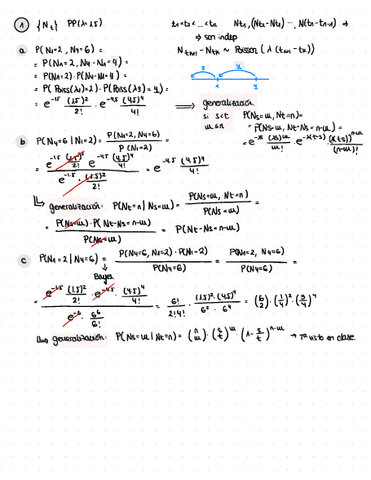 ① {Nt} PP(λ=1.5) t1<t2<...<tn Nt1, (Nt2-Nt1) ... N(tn-tn-1) ⇒
⇒ son indep
a P(N1=2, N4=6) = Ntk+1 - Ntk ~ Poisson (λ(tk+1-tk))
= P(N1=2, N4-N1=4) =
= P(N1=2)·P(N4-N1=4) =
= P(Poiss(λ)=2)·P(Poiss(λ3)=4) =
= e^-1.5 (1.5)^2/2! · e^-4.5 (4.5)^4/4! ⟹ generalización
si s<t P(Ns=m, Nt=n) =
m≤n = P(Ns=m, Nt-Ns=n-m) =
= e^-λs (λs)^m/m! · e^-λ(t-s) (λ(t-s))^n-m/(n-m)!
b P(N4=6 | N1=2) = P(N1=2, N4=6)/P(N1=2) =
= e^-1.5 (1.5)^2/2! e^-4.5 (4.5)^4/4! / e^-1.5 (1.5)^2/2! = e^-4.5 (4.5)^4/4!
↳ generalización: P(Nt=n | Ns=m) = P(Ns=m, Nt=n)/P(Ns=m) =
= P(Ns=m)·P(Nt-Ns=n-m)/P(Ns=m) = P(Nt-Ns=n-m)
c P(N1=2 | N4=6) = P(N4=6, N1=2)·P(N1=2)/P(N4=6) = P(N1=2, N4=6)/P(N4=6) =
Bayes
= e^-1.5 (1.5)^2/2! · e^-4.5 (4.5)^4/4! / e^-6 6^6/6! = 6!/2!4! · (1.5)^2·(4.5)^4/6^2·6^4 = (6 2)·(1/4)^2·(3/4)^4
⟹ generalización: P(Ns=m | Nt=n) = (n m)·(s/t)^m·(1-s/t)^n-m → visto en clase